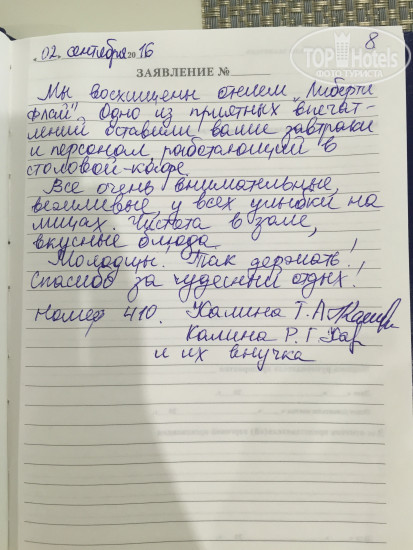 02 сентября 2016
8
TOP Hotels
ФОТО ТУРИСТА
ЗАЯВЛЕНИЕ №
Мы восхищены отелем „Либерти
Флай". Одно из приятных впечат-
лений оставили ваши завтраки
и персонал, работающий в
столовой-кафе.
Все очень внимательные,
вежливые, у всех улыбки на
лицах. Чистота в зале,
вкусные блюда.
Молодцы! Так держать!
Спасибо за чудесный отдых!
Номер 410. Калина Т.А.
Калина Р.Г.
и их внучка